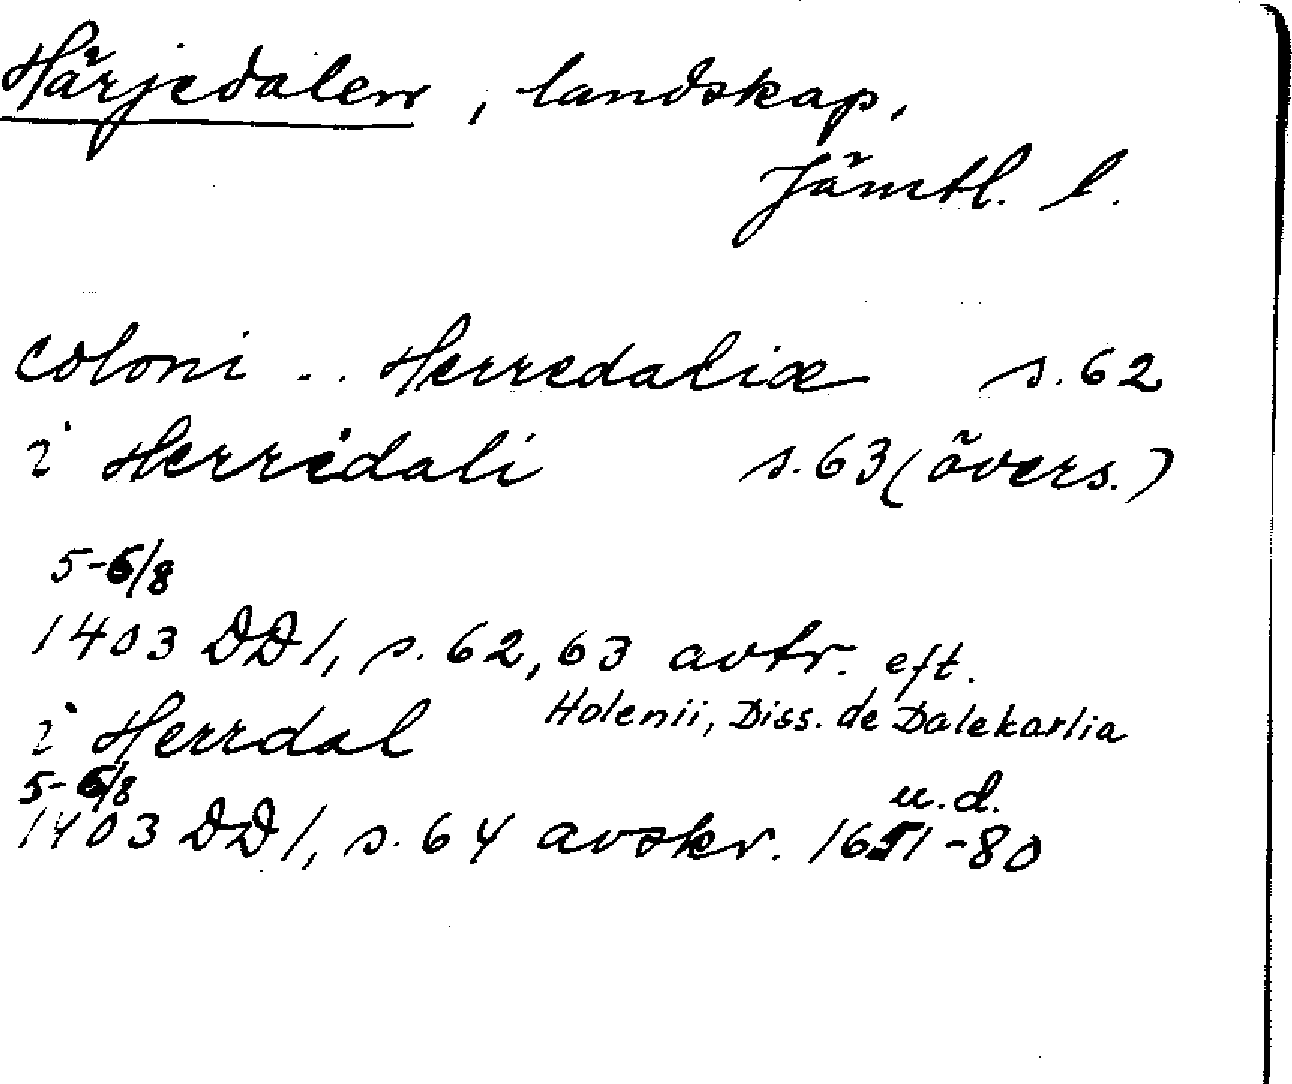 Härjedalen, landskap,
Jämtl. l.
coloni .. Herredaliæ s. 62
i Herredali s. 63 (övers.)
5-6/8
1403 DD 1, s. 62, 63 avtr. eft.
Holenii, Diss. de Dalekarlia
i Herrdal
u.d.
5-6/8
1403 DD 1, s. 64 avskr. 1651-80